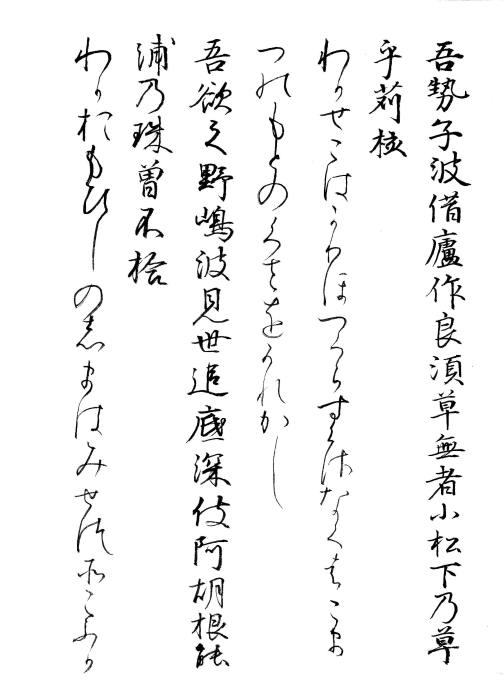 吾勢子波借廬作良須草無者小松下乃草
乎苅核
わかせこはかりほつくらすくさなくはこま
つのもとのくさをかれかし
吾欲之野嶋波見世追底深伎阿胡根能
浦乃珠曽不拾
わかおもひしのしまはみせつそこふか